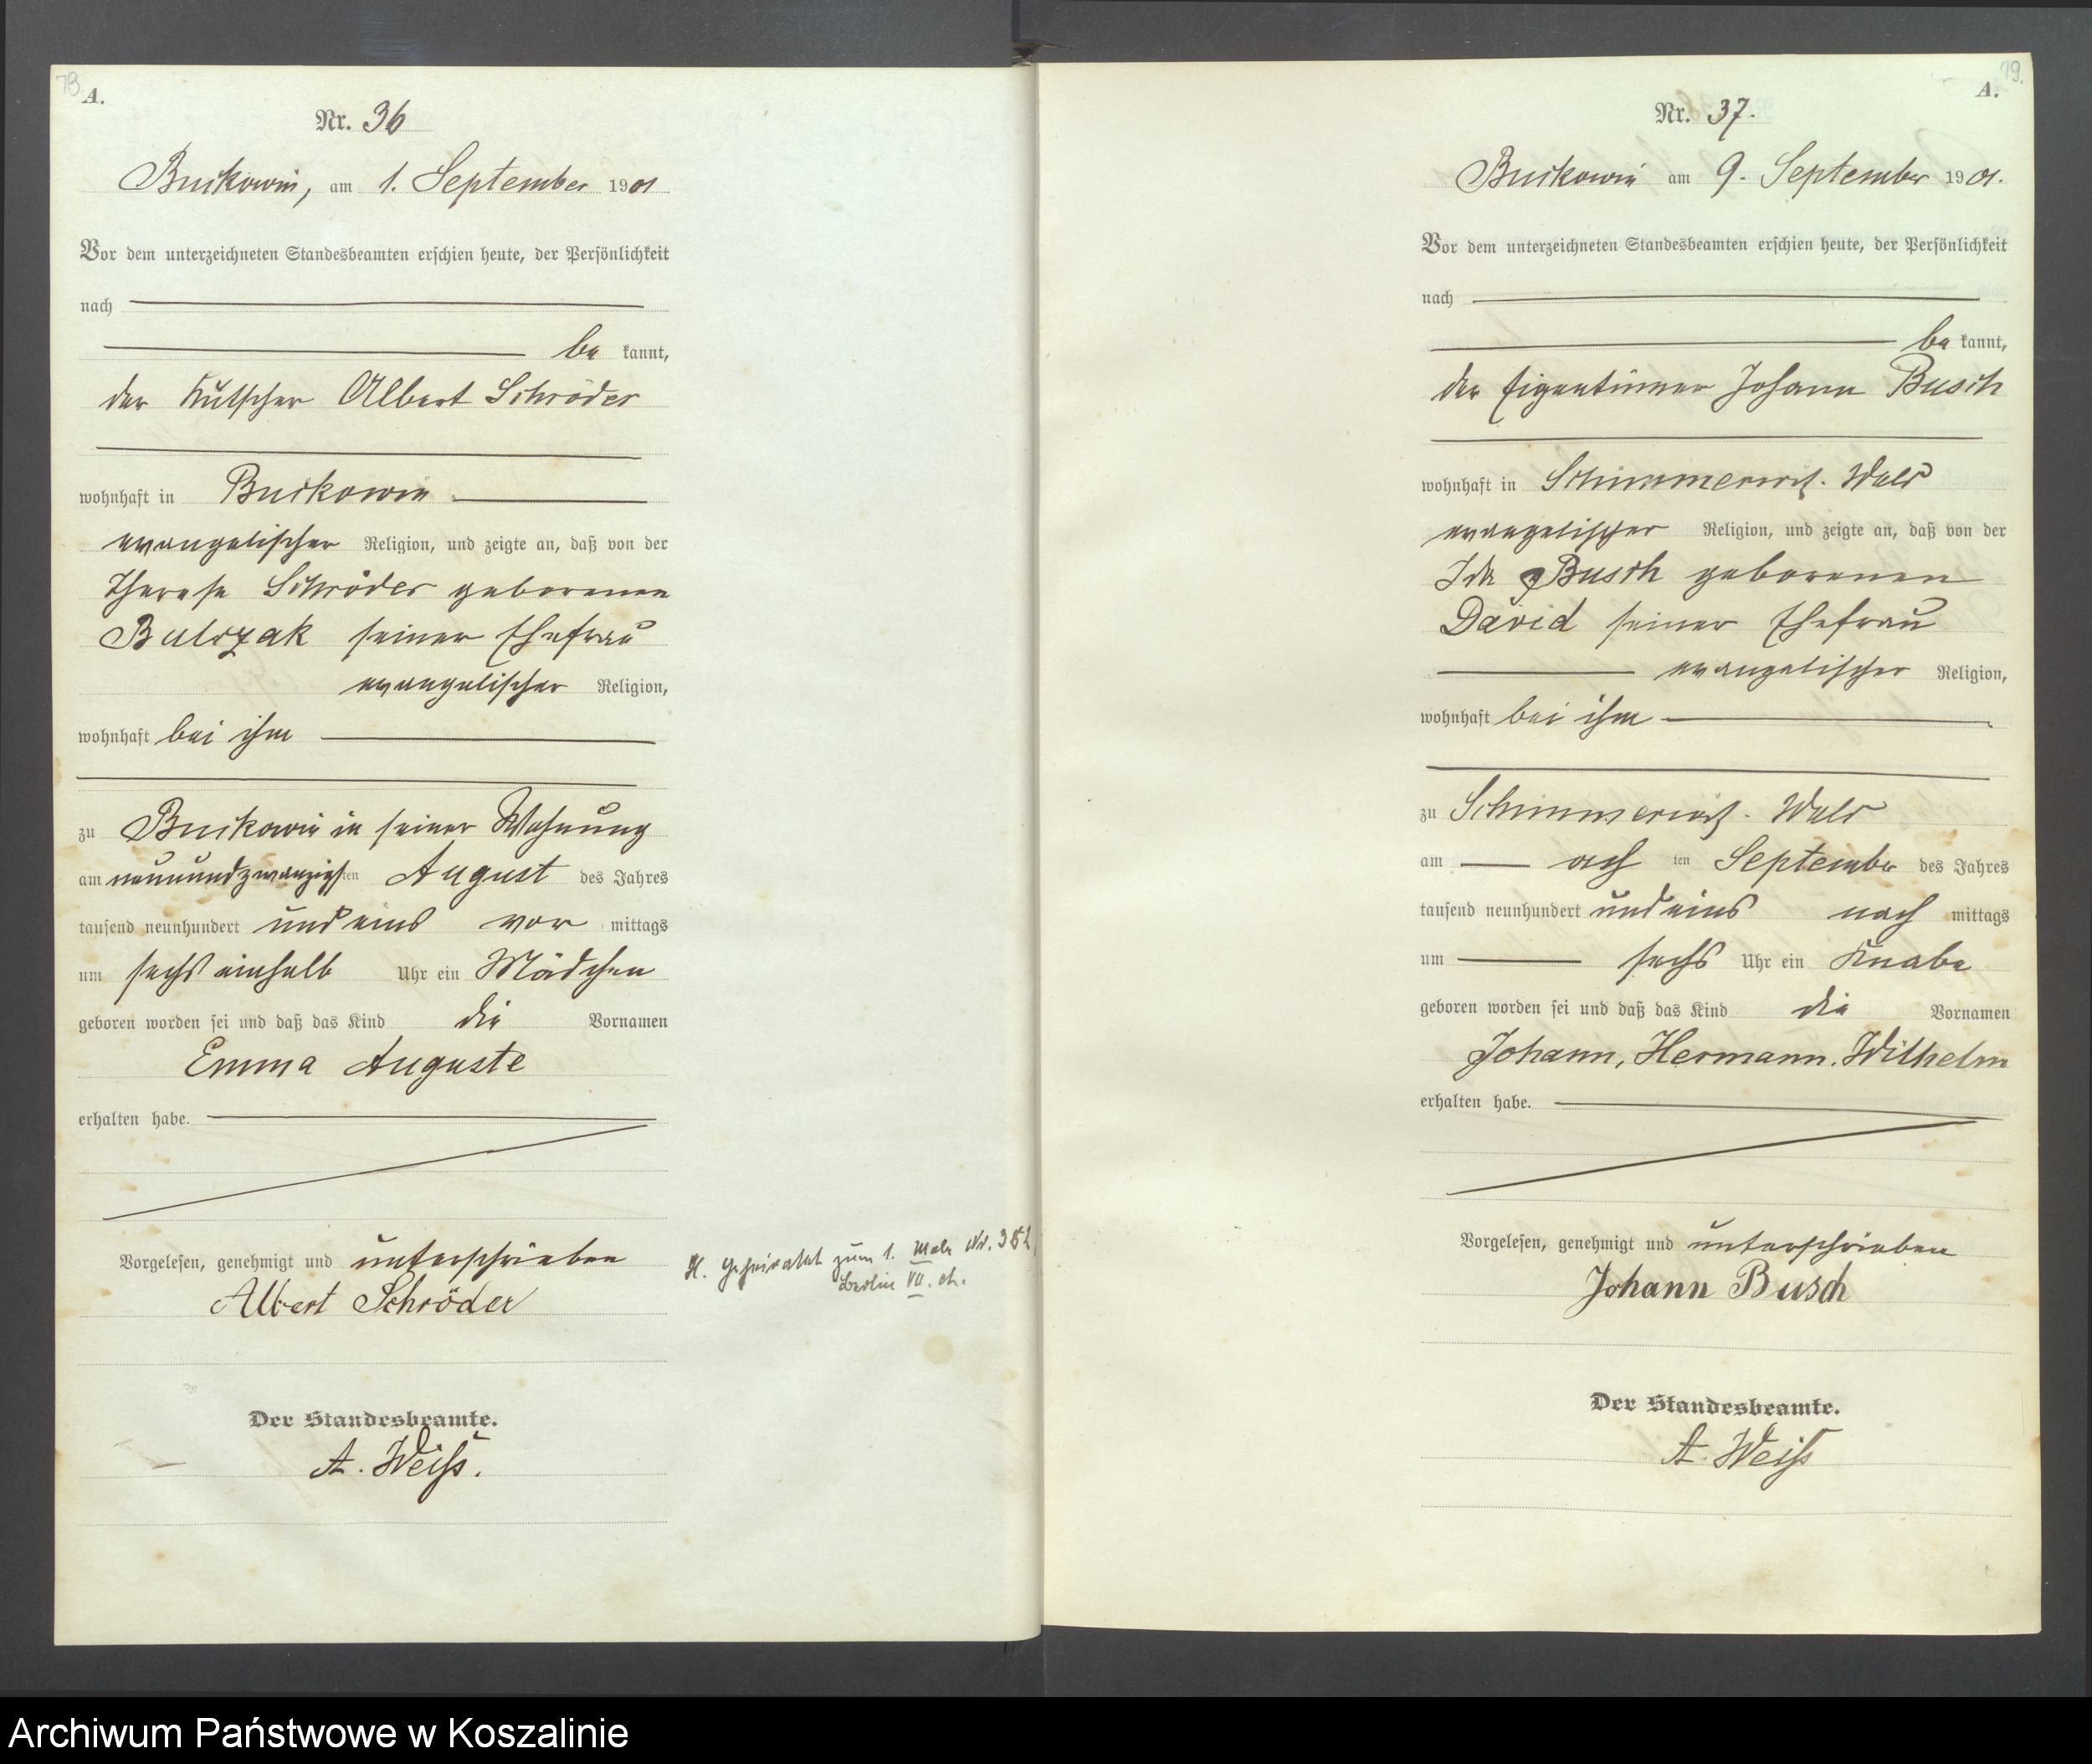 78
A.
Nr. 36
Buckowin, am 1. September 1901
Vor dem unterzeichneten Standesbeamten erschien heute, der Persönlichkeit
nach
be kannt,
der Kutscher Albert Schröder
wohnhaft in Buckowin
evangelischer Religion, und zeigte an, daß von der
Therese Schröder geborenen
Bulczak seiner Ehefrau
evangelischer Religion,
wohnhaft bei ihm
zu Buckowin in seiner Wohnung
am neunundzwanzigsten August des Jahres
tausend neunhundert und eins vor mittags
um sechs einhalb Uhr ein Mädchen
geboren worden sei und daß das Kind die Vornamen
Emma Auguste
erhalten habe.
Vorgelesen, genehmigt und unterschrieben
Albert Schröder
Der Standesbeamte.
A. Weiß.
geheiratet zum 1. Male Nr.
Berlin VII.
79.
A.
Nr. 37.
Buckowin am 9. September 1901.
Vor dem unterzeichneten Standesbeamten erschien heute, der Persönlichkeit
nach
be kannt,
der Eigentümer Johann Busch
wohnhaft in Schimmerwitz. Wald
evangelischer Religion, und zeigte an, daß von der
Ida Busch geborenen
David seiner Ehefrau
evangelischer Religion,
wohnhaft bei ihm
zu Schimmerwitz. Wald
am ach ten September des Jahres
tausend neunhundert und eins nach mittags
um sechs Uhr ein Knabe
geboren worden sei und daß das Kind die Vornamen
Johann, Hermann. Wilhelm
erhalten habe.
Vorgelesen, genehmigt und unterschrieben
Johann Busch
Der Standesbeamte.
A. Weiß
Archiwum Państwowe w Koszalinie